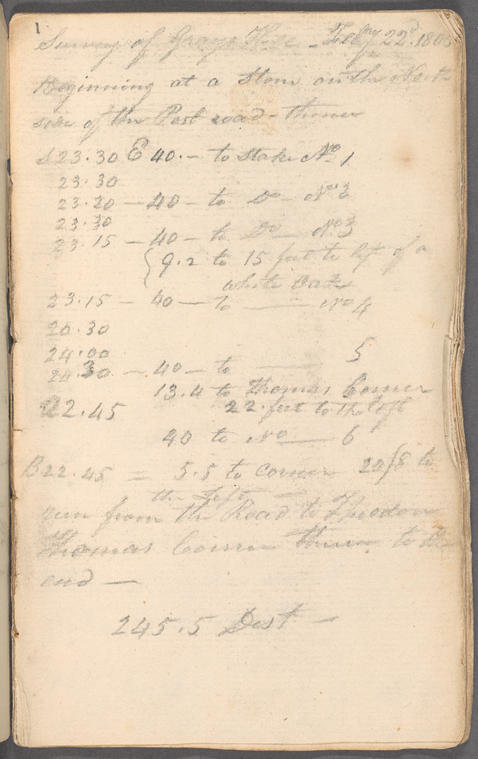 1
Survey of Grays Line - Feby 22d. 180
Beginning at a Stone on the North
side of the Post road - thence
S 23.30 E 40. - to Stake No. 1
23.30
23.20 - 40 - to Do - No 2
23.30
23.15 - 40 - to Do - No 3
{ 9.2 to 15 feet to left of a
white Oak
23.15 - 40 - to - No 4
20.30
24.00
24.30 - 40 - to - 5
13.4 to Thomas Corner
22.45 22 feet to the left
40 to No - 6
22.45 = 5.5 to Corner 20 f to
the Left
run from the Road to Theodore
Thomas Corner to the
end -
245.5 Dist -